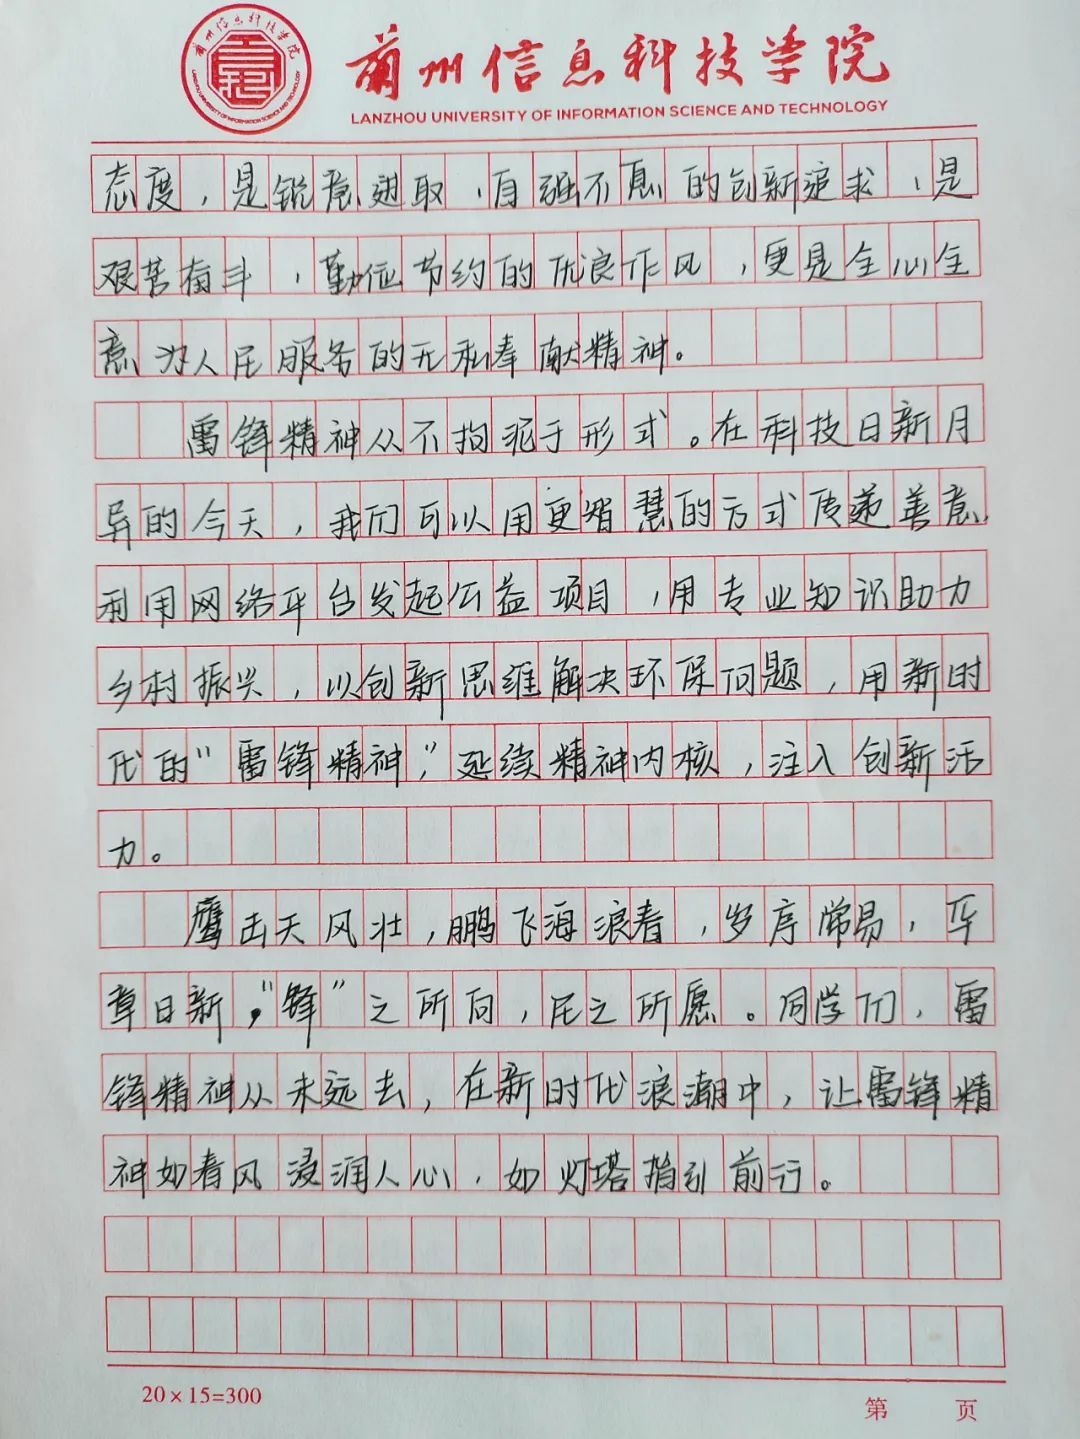 兰州信息科技学院
LANZHOU UNIVERSITY OF INFORMATION SCIENCE AND TECHNOLOGY
兰州信息科技学院
LANZHOU UNIVERSITY OF INFORMATION SCIENCE AND TECHNOLOGY
态度，是锐意进取，自强不息的创新追求，是
艰苦奋斗，勤俭节约的优良作风，更是全心全
意为人民服务的无私奉献精神。
雷锋精神从不拘泥于形式。在科技日新月
异的今天，我们可以用更智慧的方式传递善意，
利用网络平台发起公益项目，用专业知识助力
乡村振兴，以创新思维解决环保问题，用新时
代的“雷锋精神，”延续精神内核，注入创新活
力。
鹰击天风壮，鹏飞海浪春，岁序常易，华
章日新，“锋”之所向，民之所愿。同学们，雷
锋精神从未远去，在新时代浪潮中，让雷锋精
神如春风浸润人心，如灯塔指引前行。
20×15=300
第 页